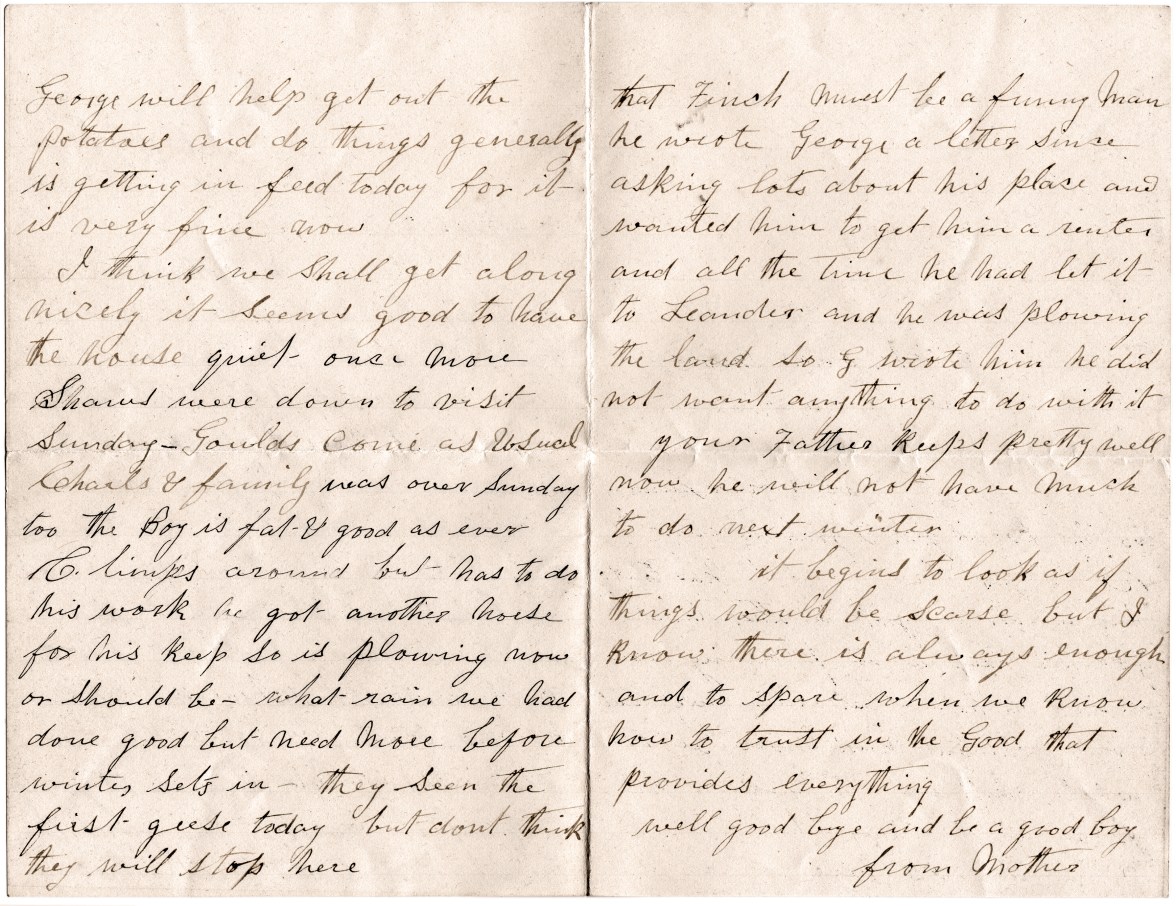 George will help get out the
potatoes and do things generally
is getting in feed today for it
is very fine now
I think we shall get along
nicely it seems good to have
the house quiet once more
Shaws were down to visit
Sunday - Goulds come as usual
Charls & family was over Sunday
too the Boy is fat & good as ever
C. limps around but has to do
his work he got another horse
for his keep so is plowing now
or should be - what rain we had
done good but need more before
winter sets in - they seen the
first geese today but dont think
they will stop here
that Finch must be a funny man
he wrote George a letter since
asking lots about his place and
wanted him to get him a renter
and all the time he had let it
to Leander and he was plowing
the land so G wrote him he did
not want anything to do with it
your Father keeps pretty well
now he will not have much
to do next winter
it begins to look as if
things would be scarse but I
know there is always enough
and to spare when we know
how to trust in the Good that
provides everything
well good bye and be a good boy
from Mother